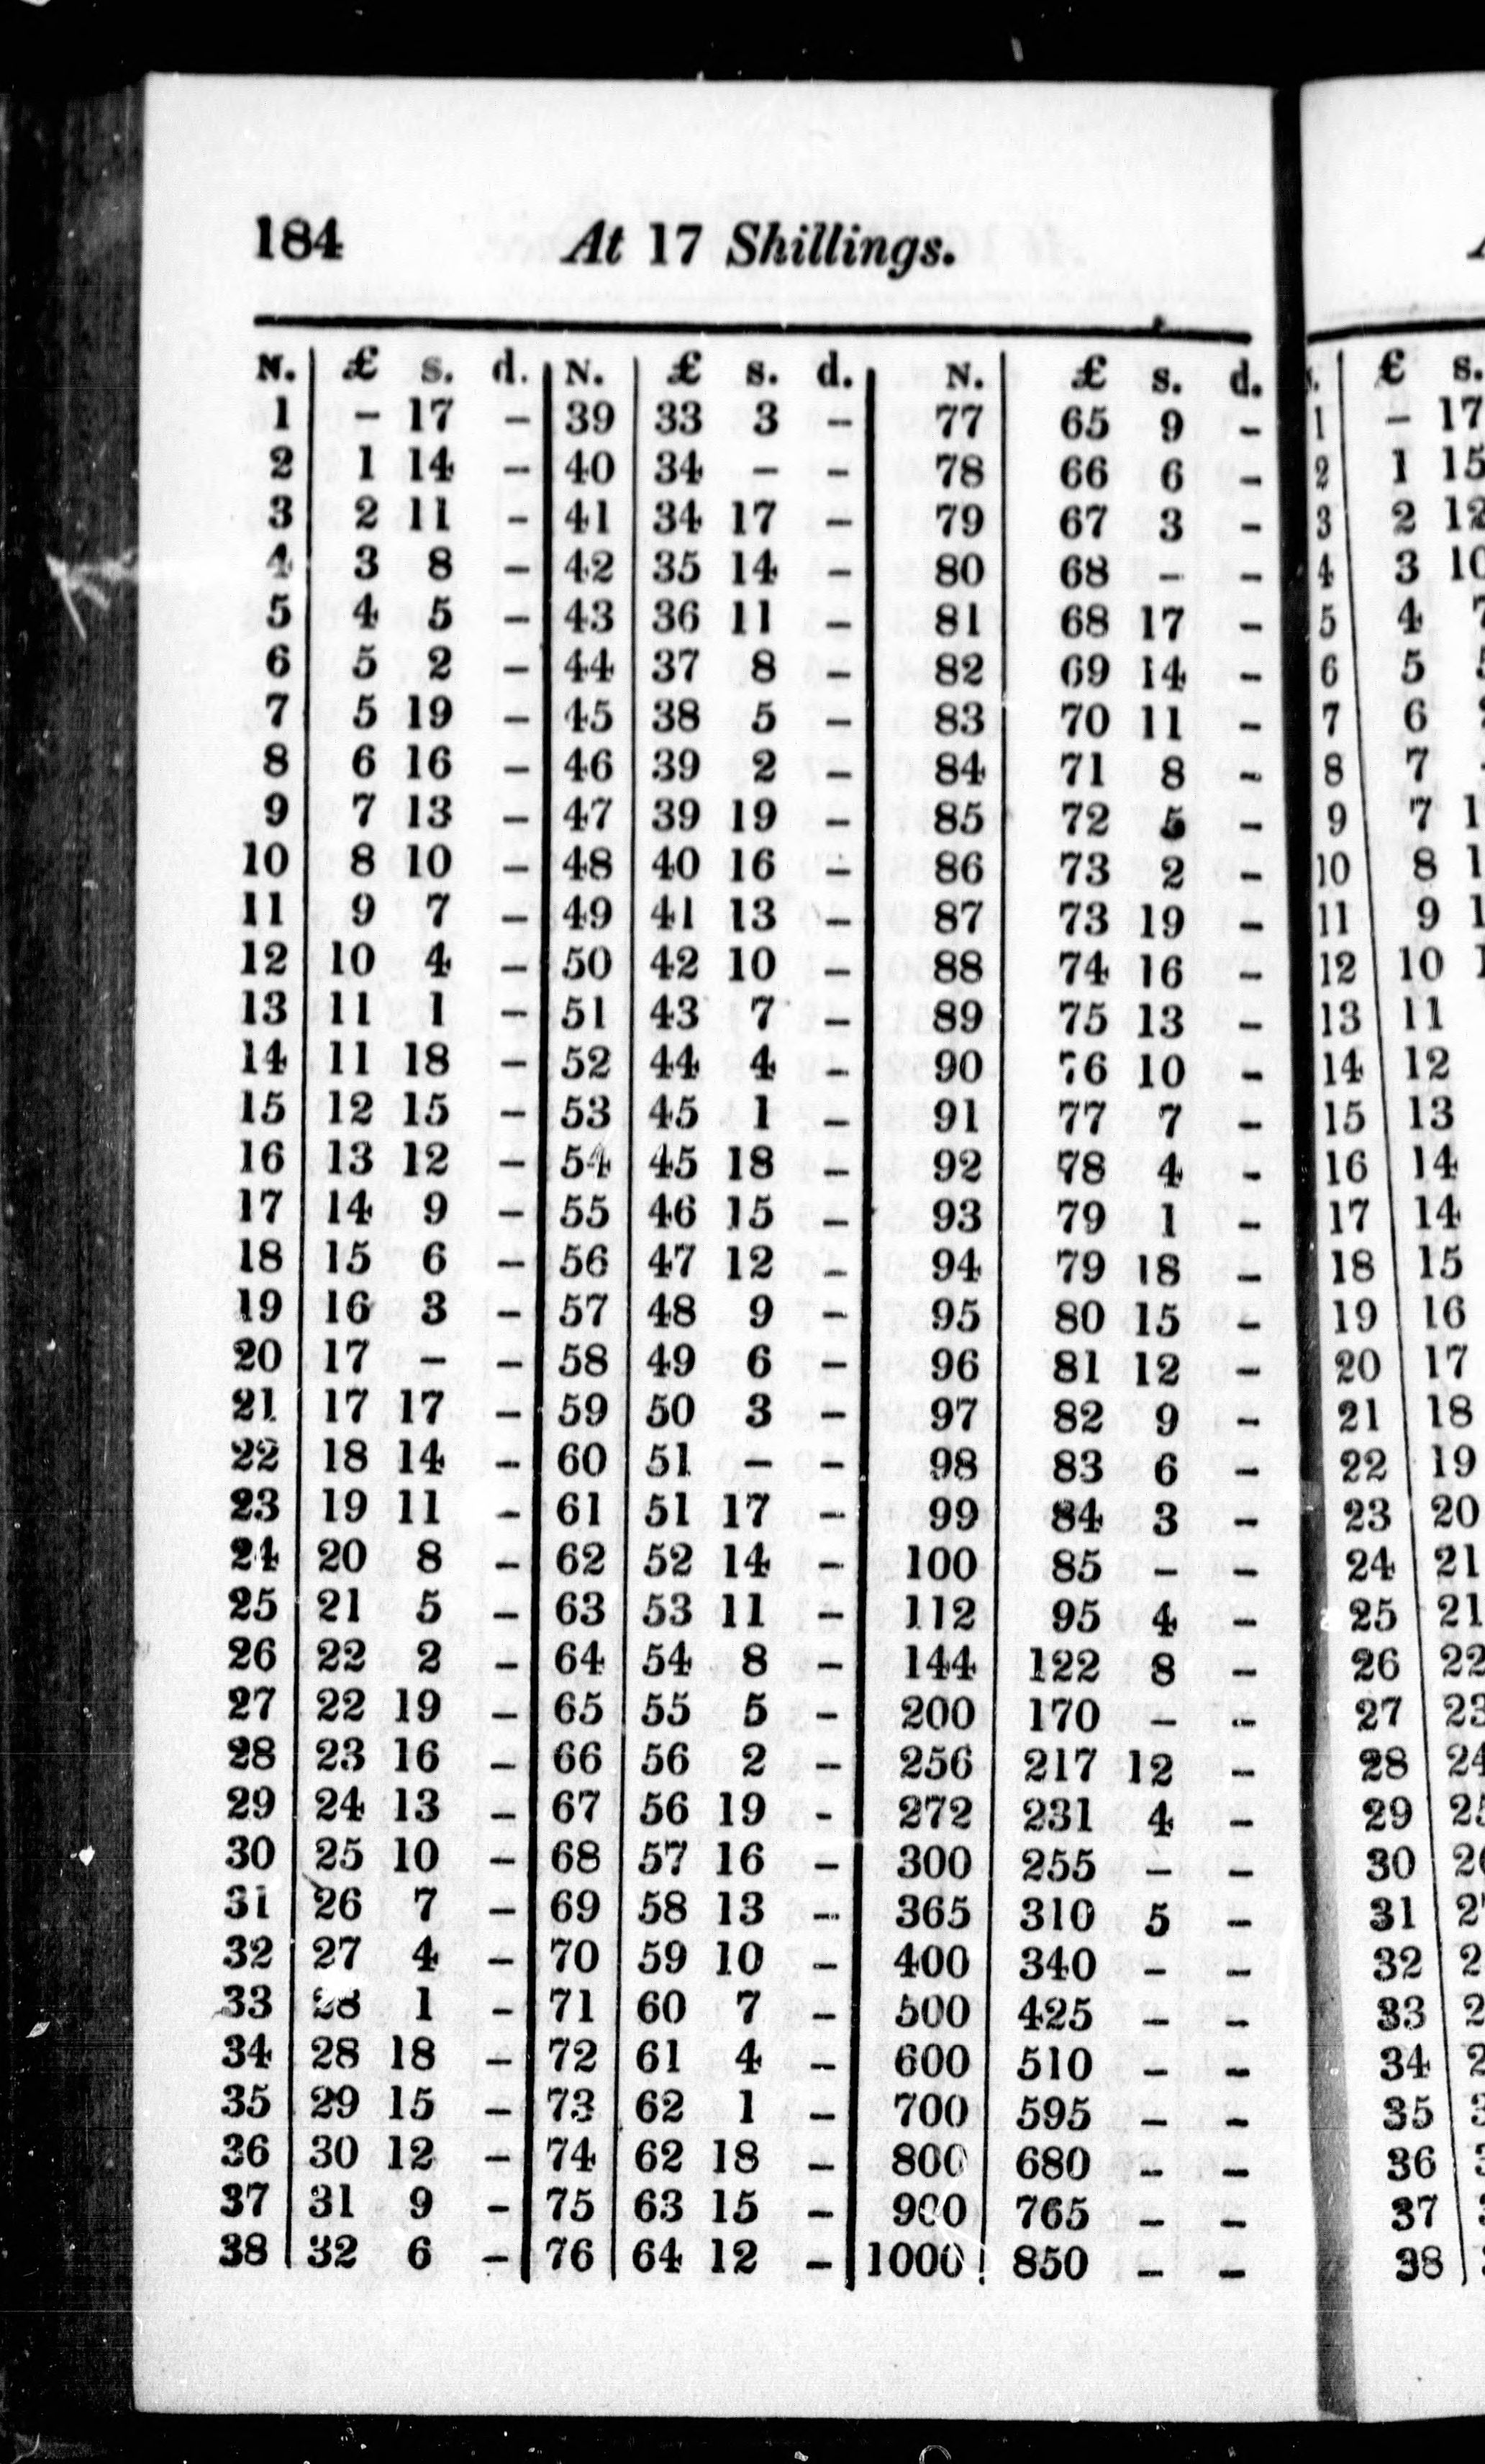 184 At 17 Shillings.
N. £ s. d. N. £ s. d. N. £ s. d.
1 – 17 – 39 33 3 – 77 65 9 –
2 1 14 – 40 34 – – 78 66 6 –
3 2 11 – 41 34 17 – 79 67 3 –
4 3 8 – 42 35 14 – 80 68 – –
5 4 5 – 43 36 11 – 81 68 17 –
6 5 2 – 44 37 8 – 82 69 14 –
7 5 19 – 45 38 5 – 83 70 11 –
8 6 16 – 46 39 2 – 84 71 8 –
9 7 13 – 47 39 19 – 85 72 5 –
10 8 10 – 48 40 16 – 86 73 2 –
11 9 7 – 49 41 13 – 87 73 19 –
12 10 4 – 50 42 10 – 88 74 16 –
13 11 1 – 51 43 7 – 89 75 13 –
14 11 18 – 52 44 4 – 90 76 10 –
15 12 15 – 53 45 1 – 91 77 7 –
16 13 12 – 54 45 18 – 92 78 4 –
17 14 9 – 55 46 15 – 93 79 1 –
18 15 6 – 56 47 12 – 94 79 18 –
19 16 3 – 57 48 9 – 95 80 15 –
20 17 – – 58 49 6 – 96 81 12 –
21 17 17 – 59 50 3 – 97 82 9 –
22 18 14 – 60 51 – – 98 83 6 –
23 19 11 – 61 51 17 – 99 84 3 –
24 20 8 – 62 52 14 – 100 85 – –
25 21 5 – 63 53 11 – 112 95 4 –
26 22 2 – 64 54 8 – 144 122 8 –
27 22 19 – 65 55 5 – 200 170 – –
28 23 16 – 66 56 2 – 256 217 12 –
29 24 13 – 67 56 19 – 272 231 4 –
30 25 10 – 68 57 16 – 300 255 – –
31 26 7 – 69 58 13 – 365 310 5 –
32 27 4 – 70 59 10 – 400 340 – –
33 28 1 – 71 60 7 – 500 425 – –
34 28 18 – 72 61 4 – 600 510 – –
35 29 15 – 73 62 1 – 700 595 – –
36 30 12 – 74 62 18 – 800 680 – –
37 31 9 – 75 63 15 – 900 765 – –
38 32 6 – 76 64 12 – 1000 850 – –
£ s.
1 – 17
2 1 15
3 2 12
4 3 10
5 4 7
6 5
7 6
8 7
9 7
10 8
11 9
12 10
13 11
14 12
15 13
16 14
17 14
18 15
19 16
20 17
21 18
22 19
23 20
24 21
25 21
26 22
27 23
28 24
29
30
31
32
33
34
35
36
37
38